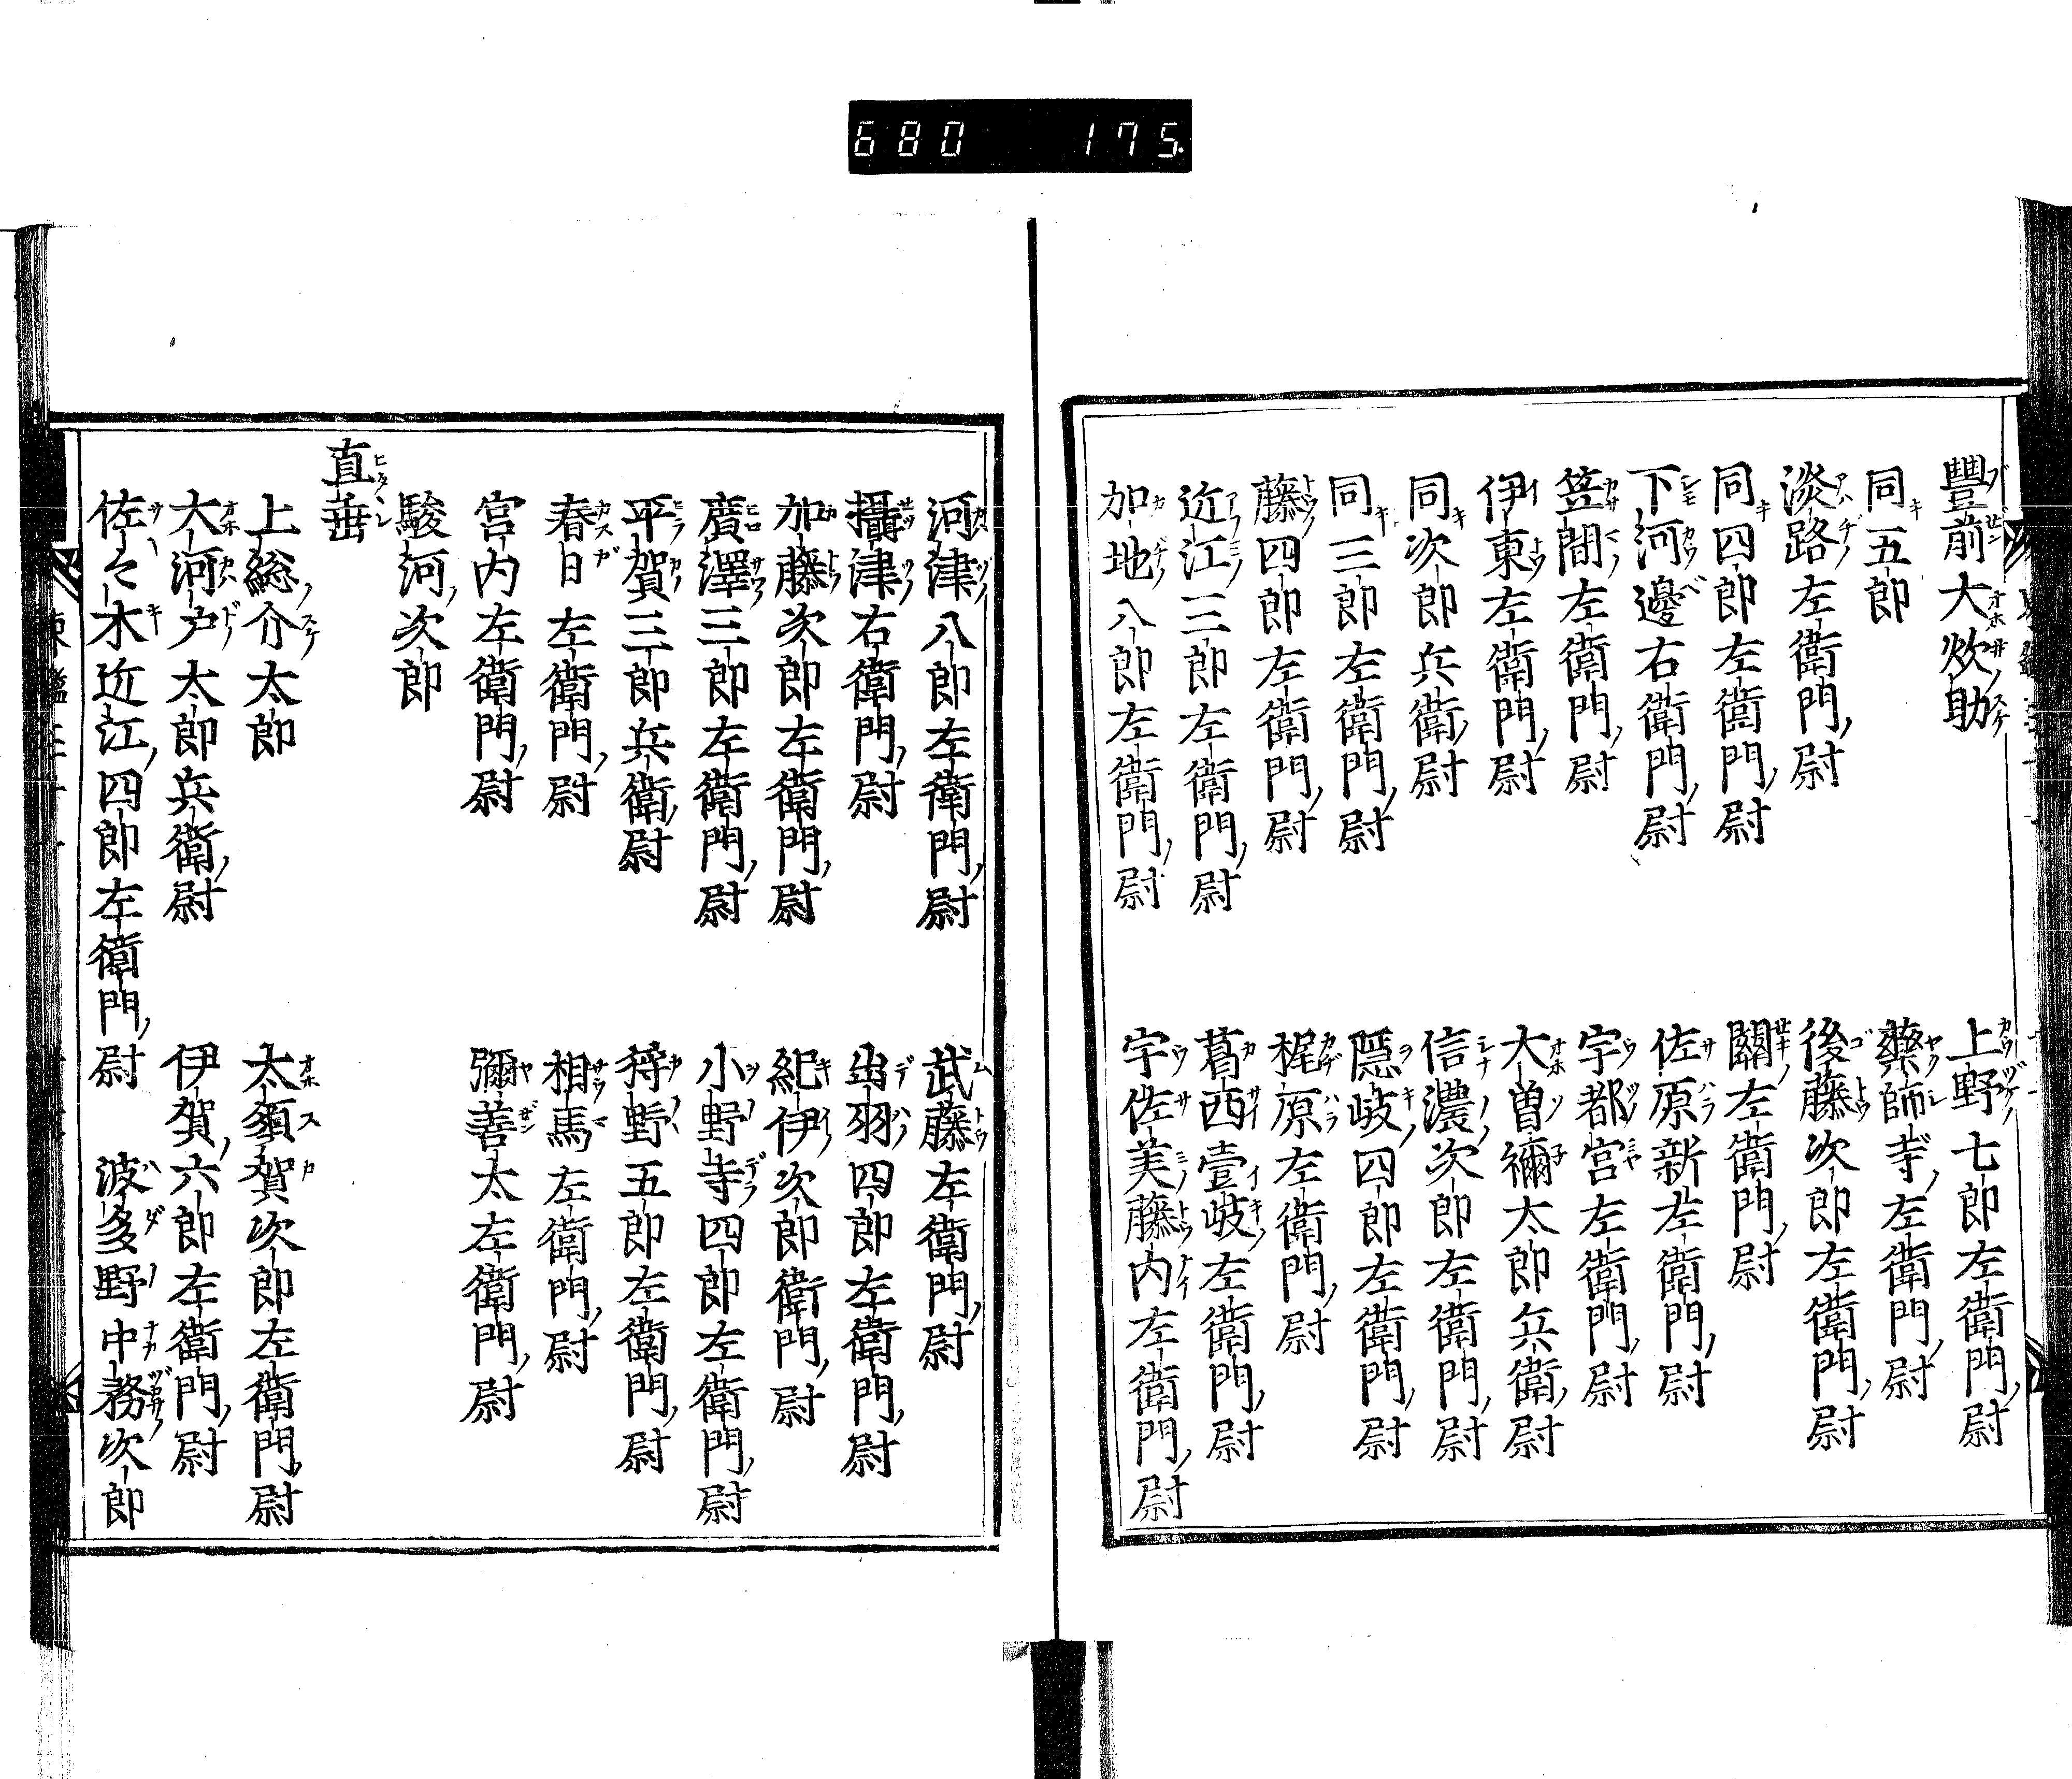 680 175.
豐前大炊助 上野七郎左衛門尉
同五郎 藥師寺左衛門尉
淡路左衛門尉 後藤次郎左衛門尉
同四郎左衛門尉 關左衛門尉
下河邊右衛門尉 佐原新左衛門尉
笠間左衛門尉 宇都宮左衛門尉
伊東左衛門尉 大曽禰太郎兵衛尉
同次郎兵衛尉 信濃次郎左衛門尉
同三郎左衛門尉 隠岐四郎左衛門尉
藤四郎左衛門尉 梶原左衛門尉
近江三郎左衛門尉 葛西壹岐左衛門尉
加地八郎左衛門尉 宇佐美藤内左衛門尉
河津八郎左衛門尉 武藤左衛門尉
攝津右衛門尉 出羽四郎左衛門尉
加藤次郎左衛門尉 紀伊次郎衛門尉
廣澤三郎左衛門尉 小野寺四郎左衛門尉
平賀三郎兵衛尉 狩野五郎左衛門尉
春日左衛門尉 相馬左衛門尉
宮内左衛門尉 彌善太左衛門尉
駿河次郎
直垂
上総介太郎 大須賀次郎左衛門尉
大河戸太郎兵衛尉 伊賀六郎左衛門尉
佐々木近江四郎左衛門尉 波多野中務次郎